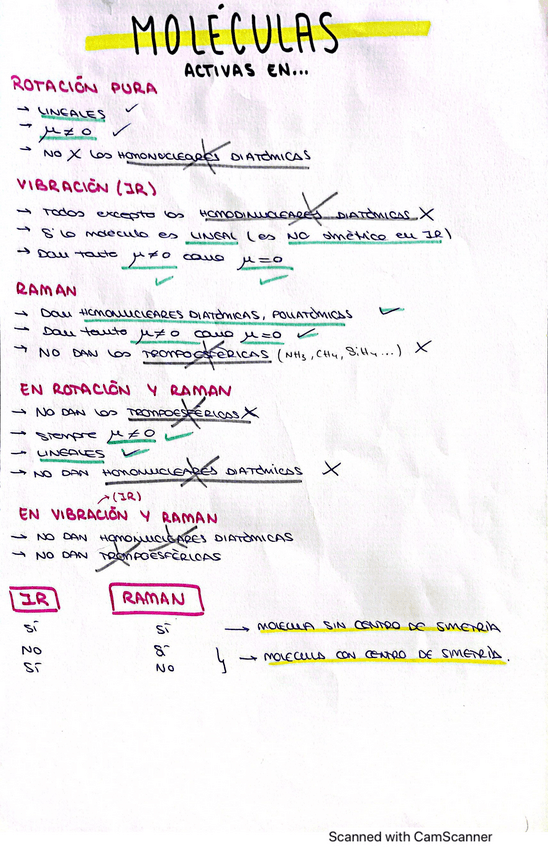 MOLÉCULAS
ACTIVAS EN...
ROTACIÓN PURA
→ LINEALES ✓
→ μ ≠ 0 ✓
→ NO X LOS HOMONOCLEARES DIATÓMICAS
VIBRACIÓN (IR)
→ Todos excepto los HOMODINUCLEARES DIATÓMICAS X
→ Si la molécula es LINEAL (es NO simétrico en IR)
→ Dan tanto μ ≠ 0 como μ = 0
✓ ✓
RAMAN
→ Dan HOMONUCLEARES DIATÓMICAS, POLIATÓMICAS ✓
→ Dan tanto μ ≠ 0 como μ = 0 ✓
→ NO DAN LOS TROMPOESFÉRICAS (NH3, CH4, SiH4...) X
EN ROTACIÓN Y RAMAN
→ NO DAN LOS TROMPOESFÉRICAS X
→ siempre μ ≠ 0 ✓
→ LINEALES ✓
→ NO DAN HOMONUCLEARES DIATÓMICAS X
↗(IR)
EN VIBRACIÓN Y RAMAN
→ NO DAN HOMONUCLEARES DIATÓMICAS
→ NO DAN TROMPOESFÉRICAS
IR RAMAN
SÍ SÍ → MOLÉCULA SIN CENTRO DE SIMETRÍA
NO SÍ
SÍ NO } → MOLÉCULA CON CENTRO DE SIMETRÍA.
Scanned with CamScanner